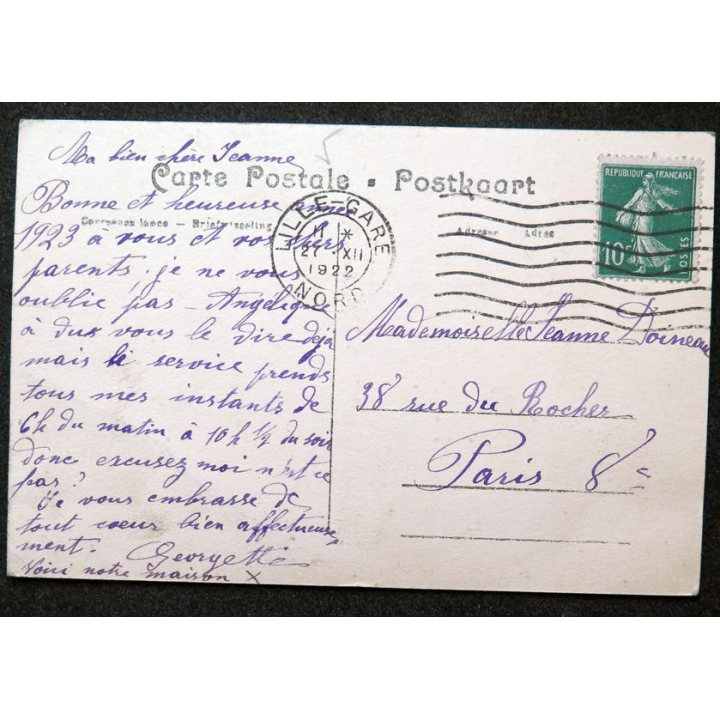 Ma bien chère Jeanne
Carte Postale - Postkaart
Bonne et heureuse année
Correspondance - Briefwisseling
1923 à vous et vos chers
parents. je ne vous
oublie pas - Angélique
à dux vous le dire déjà
mais le service prends
tous mes instants de
6h du matin à 10h ½ du soir
donc excusez moi n'est ce
pas?
Je vous embrasse de
tout coeur bien affectueuse-
ment. Georgette
Voici notre maison X
LILLE-GARE
11 *
27 XII
1922
NORD
Adresse Adres
REPUBLIQUE FRANÇAISE
10c
POSTES
Mademoiselle Jeanne Doineau
38 rue du Rocher
Paris 8e